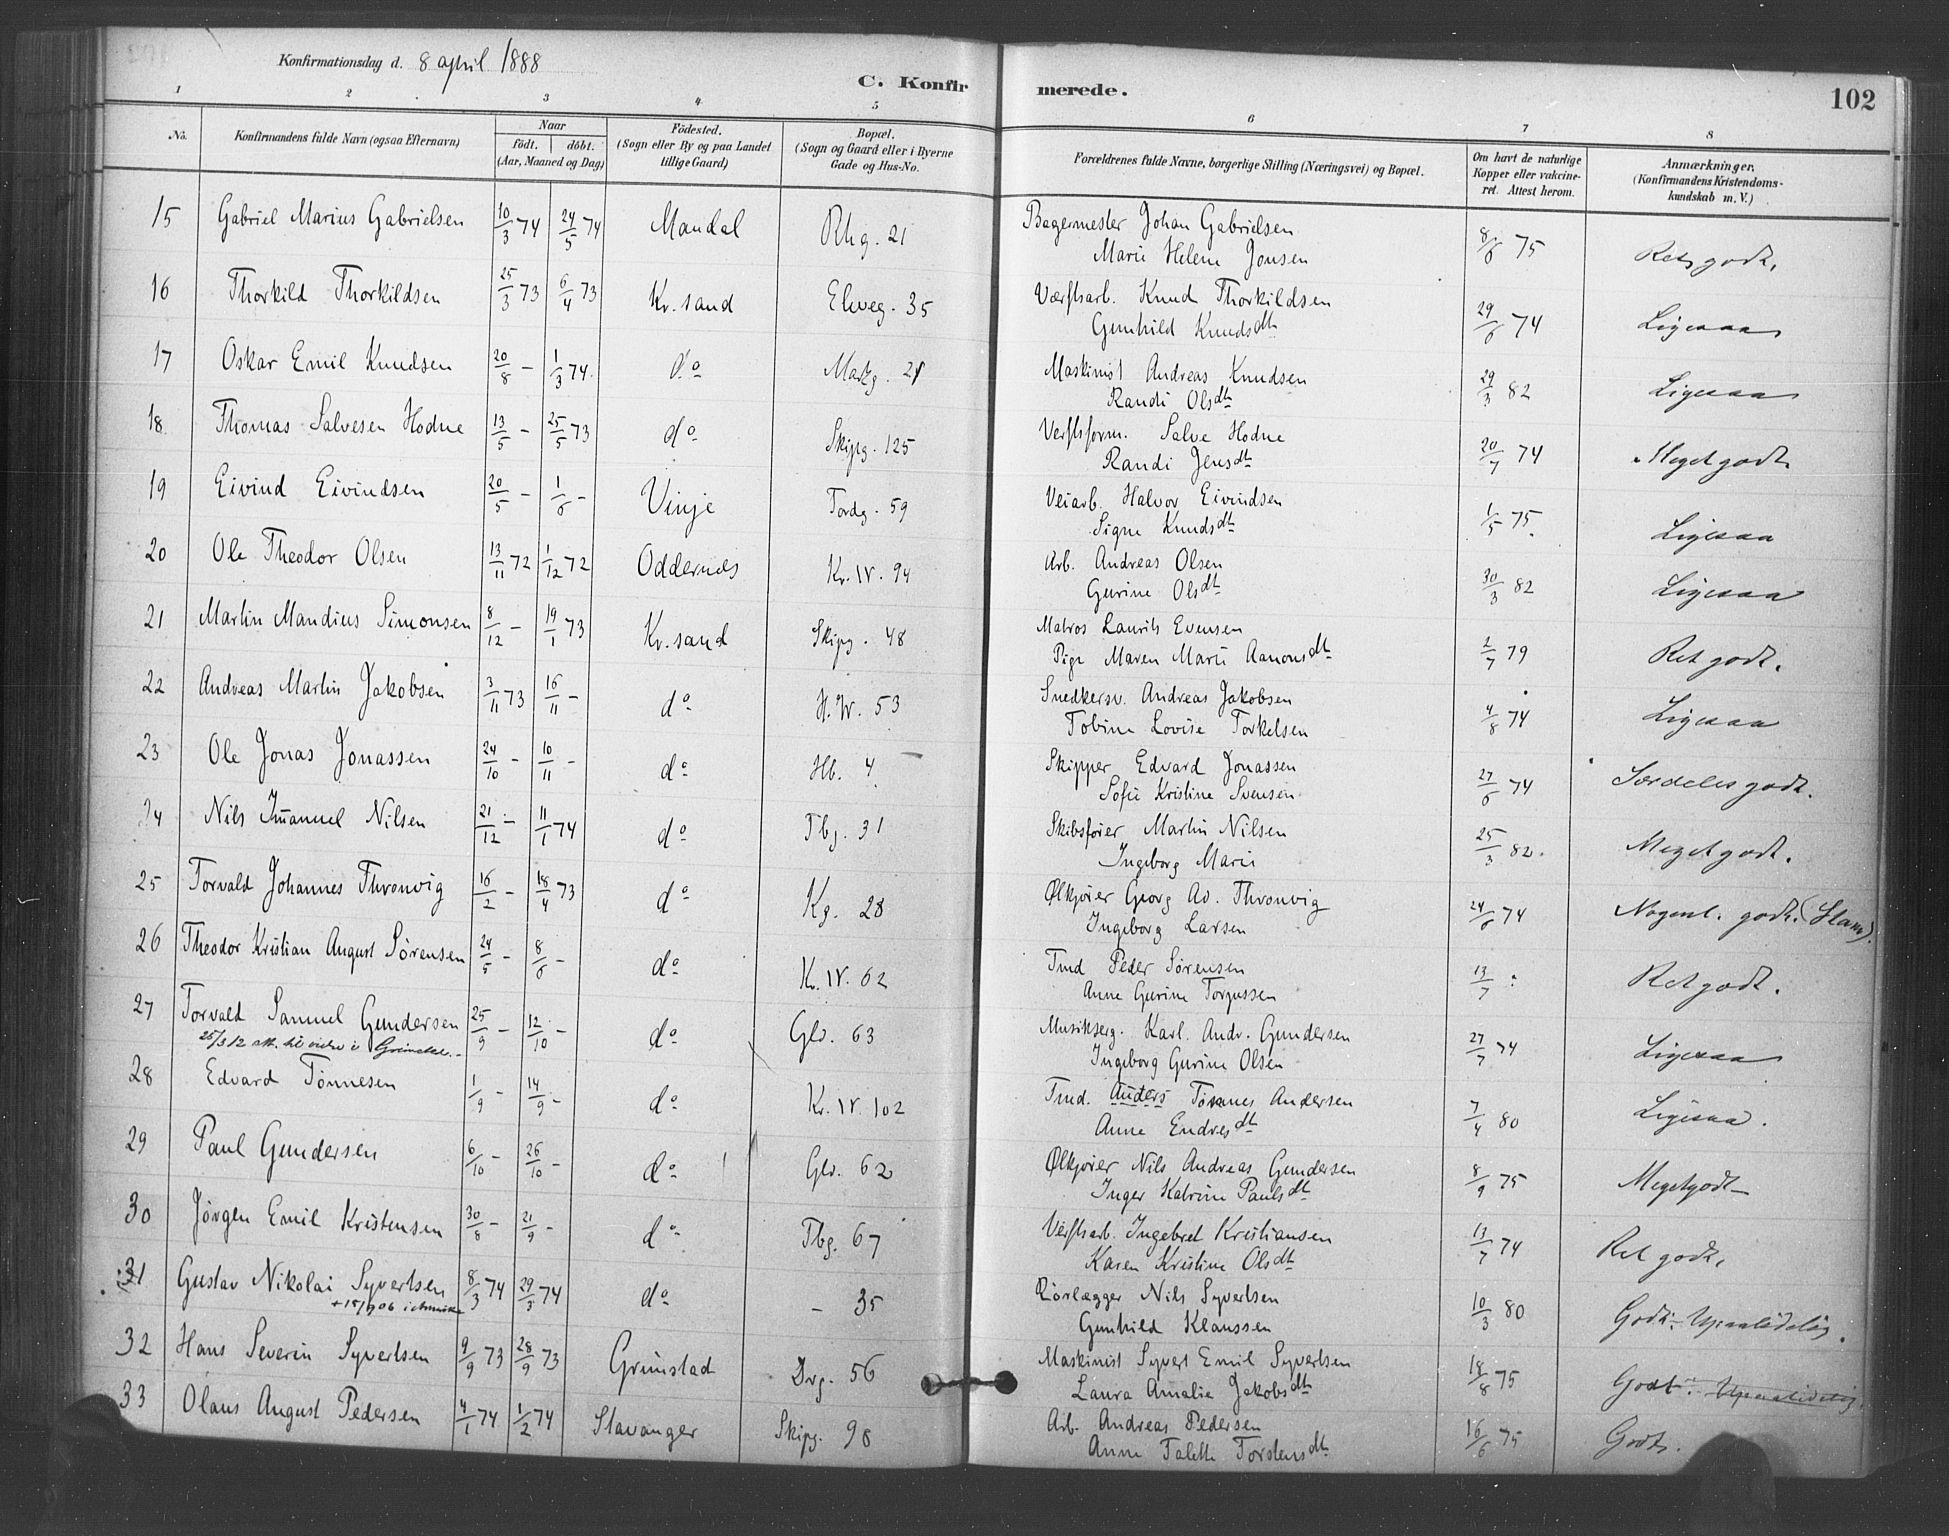 Konfirmationsdag d. 8 april 1888
C. Konfirmerede. 102
1 2 3 4 5 6 7 8
No. Konfirmandens fulde Navn (ogsaa Efternavn) Naar født. døbt. (Aar, Maaned og Dag) Fødested. (Sogn eller By og paa Landet tillige Gaard) Bopæl. (Sogn og Gaard eller i Byerne Gade og Hus-No. Forældrenes fulde Navne, borgerlige Stilling (Næringsvei) og Bopæl. Om havt de naturlige Kopper eller vakcineret. Attest herom. Anmærkninger. (Konfirmandens Kristendomskundskab m. V.)
15 Gabriel Marius Gabrielsen 10/3 74 24/5 74 Mandal Rhg. 21 Bagermester Johan Gabrielsen 8/6 75 Ret godt.
Marie Helene Jonsen
16 Thorkild Thorkildsen 25/3 73 6/4 73 Kr.sand Elveg. 35 Værftsarb. Knud Thorkildsen 29/6 74 Ligesaa
Gunhild Knudsdt
17 Oskar Emil Knudsen 20/8 - 1/3 74. do Markg. 21 Maskinist Andreas Knudsen 29/3 82 Ligesaa
Randi Olsdt
18 Thomas Salvesen Hodne 13/5 - 25/5 73 do Skipg. 125 Verftsform. Salve Hodne 20/7 74 Meget godt
Randi Jensdt
19 Eivind Eivindsen 20/5 - 1/6 - Vinje Tordg. 59 Veiarb. Halvor Eivindsen 1/5 75. Ligesaa
Signe Knudsdt
20 Ole Theodor Olsen 13/11 72 1/12 72 Oddernes Kr. IV. 94 Arb. Andreas Olsen 30/3 82 Ligesaa
Gurine Olsdt
21 Martin Mandius Simonsen 8/12 - 19/1 73 Kr.sand Skipg. 48 Matros Laurits Evensen 2/7 79 Ret godt.
Pige Maren Marie Aanonsdt
22 Andreas Martin Jakobsen 3/11 73 16/11 - do H.W. 53 Snedkersv. Andreas Jakobsen 4/8 74 Ligesaa
Tobine Lovise Torkelsen
23 Ole Jonas Jonassen 24/10 - 10/11 - do Hb. 4 Skipper Edvard Jonassen 27/6 74 Særdeles godt.
Sofie Kristine Svensen
24 Nils Imanuel Nilsen 21/12 - 11/1 74 do Tbg. 31 Skibsfører Martin Nilsen 25/3 82. Meget godt.
Ingeborg Marie
25 Torvald Johannes Thronvig 16/2 - 18/4 73 do Kg. 28 Ølkjører Georg Ad. Thronvig 24/6 74 Nogenl. godt. (Stam).
Ingeborg Larsen
26 Theodor Kristian August Sørensen 24/5 - 8/6 - do Kr. IV. 62 Tmd Peder Sørensen 13/7 : Ret godt.
Anne Gurine Torjussen
27 Torvald Samuel Gundersen 25/9 - 12/10 - do Gld. 63 Musikserg. Karl. Andr. Gundersen 27/7 74 Ligesaa
25/3 12 att. til i Grimstad. Ingeborg Gurine Olsen
28 Edvard Tønnesen 1/9 - 14/9 - do Kr. IV. 102 Tmd. Anders Tønnes Andersen 7/4 80 Ligesaa.
Anne Endresdt
29 Paul Gundersen 6/10 - 26/10 - do Gld. 62 Ølkjører Nils Andreas Gundersen 8/9 75 Meget godt
Inger Katrine Paulsdt
30 Jørgen Emil Kristensen 30/8 - 21/9 - do Tbg. 67 Verftsarb. Ingebret Kristiansen 13/7 74 Ret godt.
Karen Kristine Olsdt
31 Gustav Nikolai Syvertsen 8/3 74 29/3 74 do - 35 Rørlægger Nils Syvertsen 10/3 80 Godt. Upaalidelig.
Gunhild Klaussen
32 Hans Severin Syvertsen 9/9 73 28/9 73 Grimstad Drg. 56 Maskinist Syvert Emil Syvertsen 18/8 75 Godt. Upaalidelig.
Laura Amalie Jakobsdt
33 Olaus August Pedersen 4/1 74 1/2 74 Stavanger Skipg. 98 Arb. Andreas Pedersen 16/6 75 Godt.
Anne Talette Torstensdt